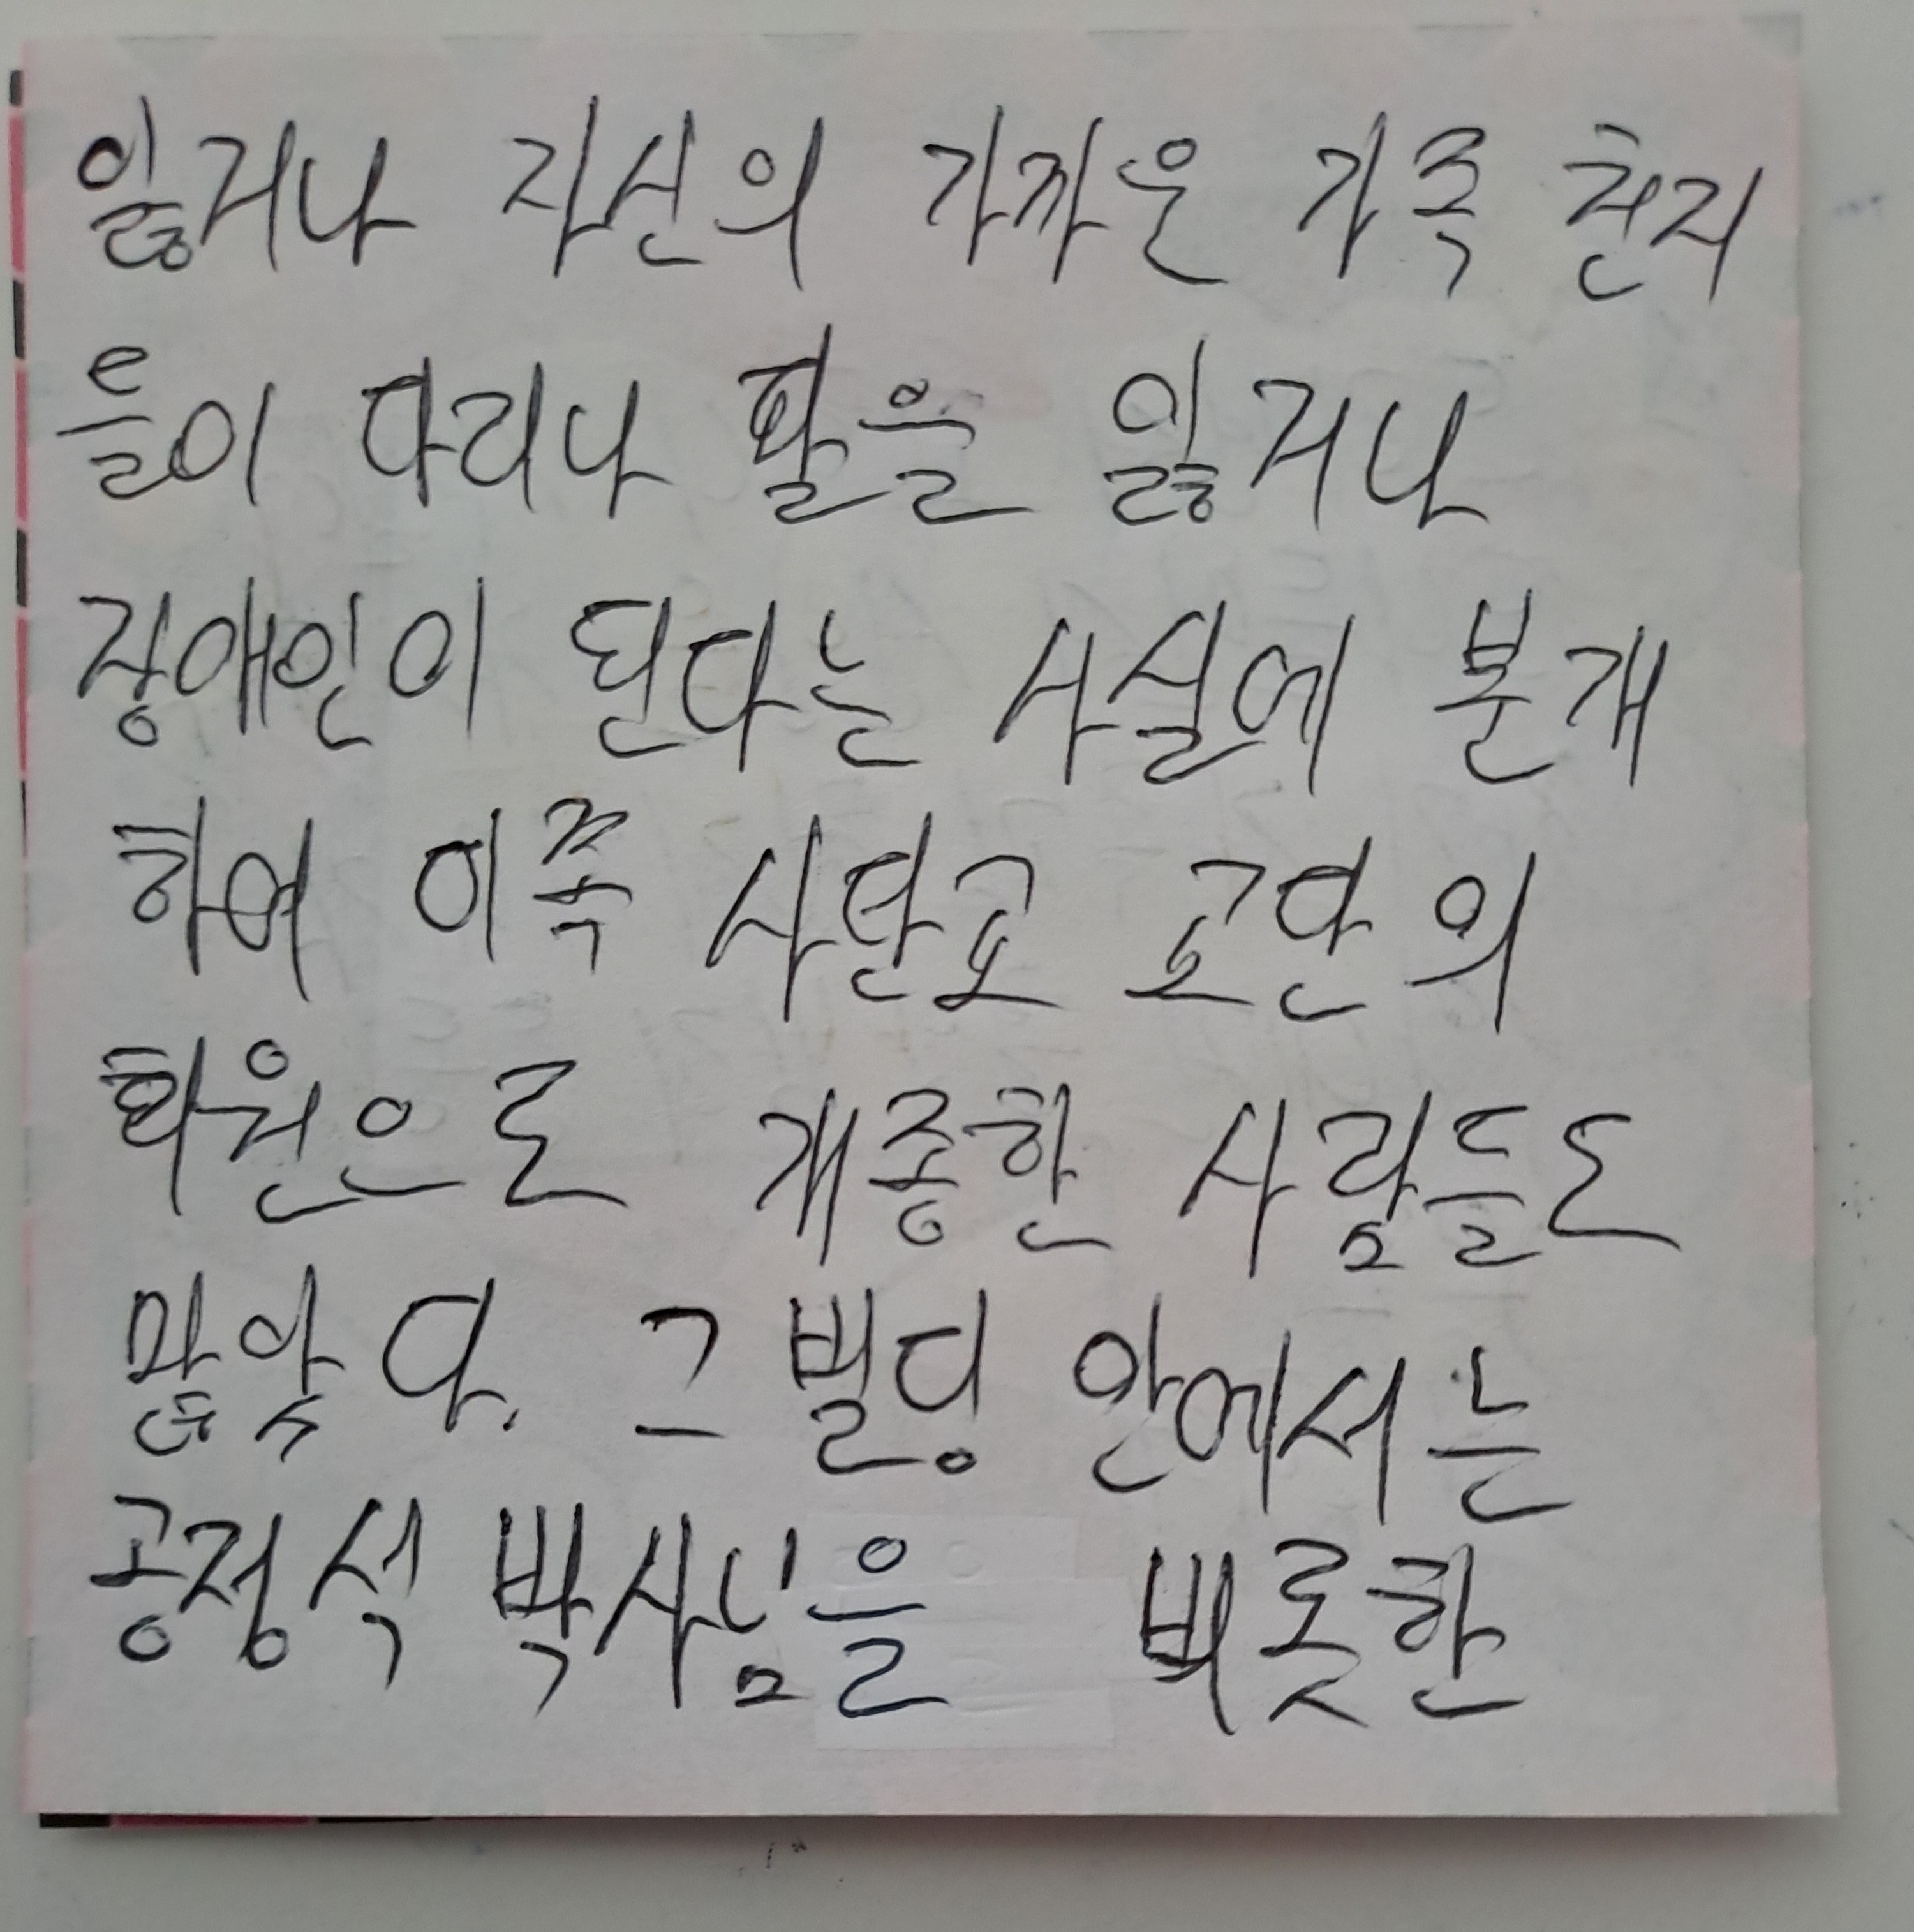 잃거나 자신의 가까운 가족 친지
들이 다리나 팔을 잃거나
장애인이 된다는 사실에 분개
하여 이쪽 사탄교 교단의
회원으로 개종한 사람들도
많았다. 그 빌딩 안에서는
공정석 박사님을 비롯한